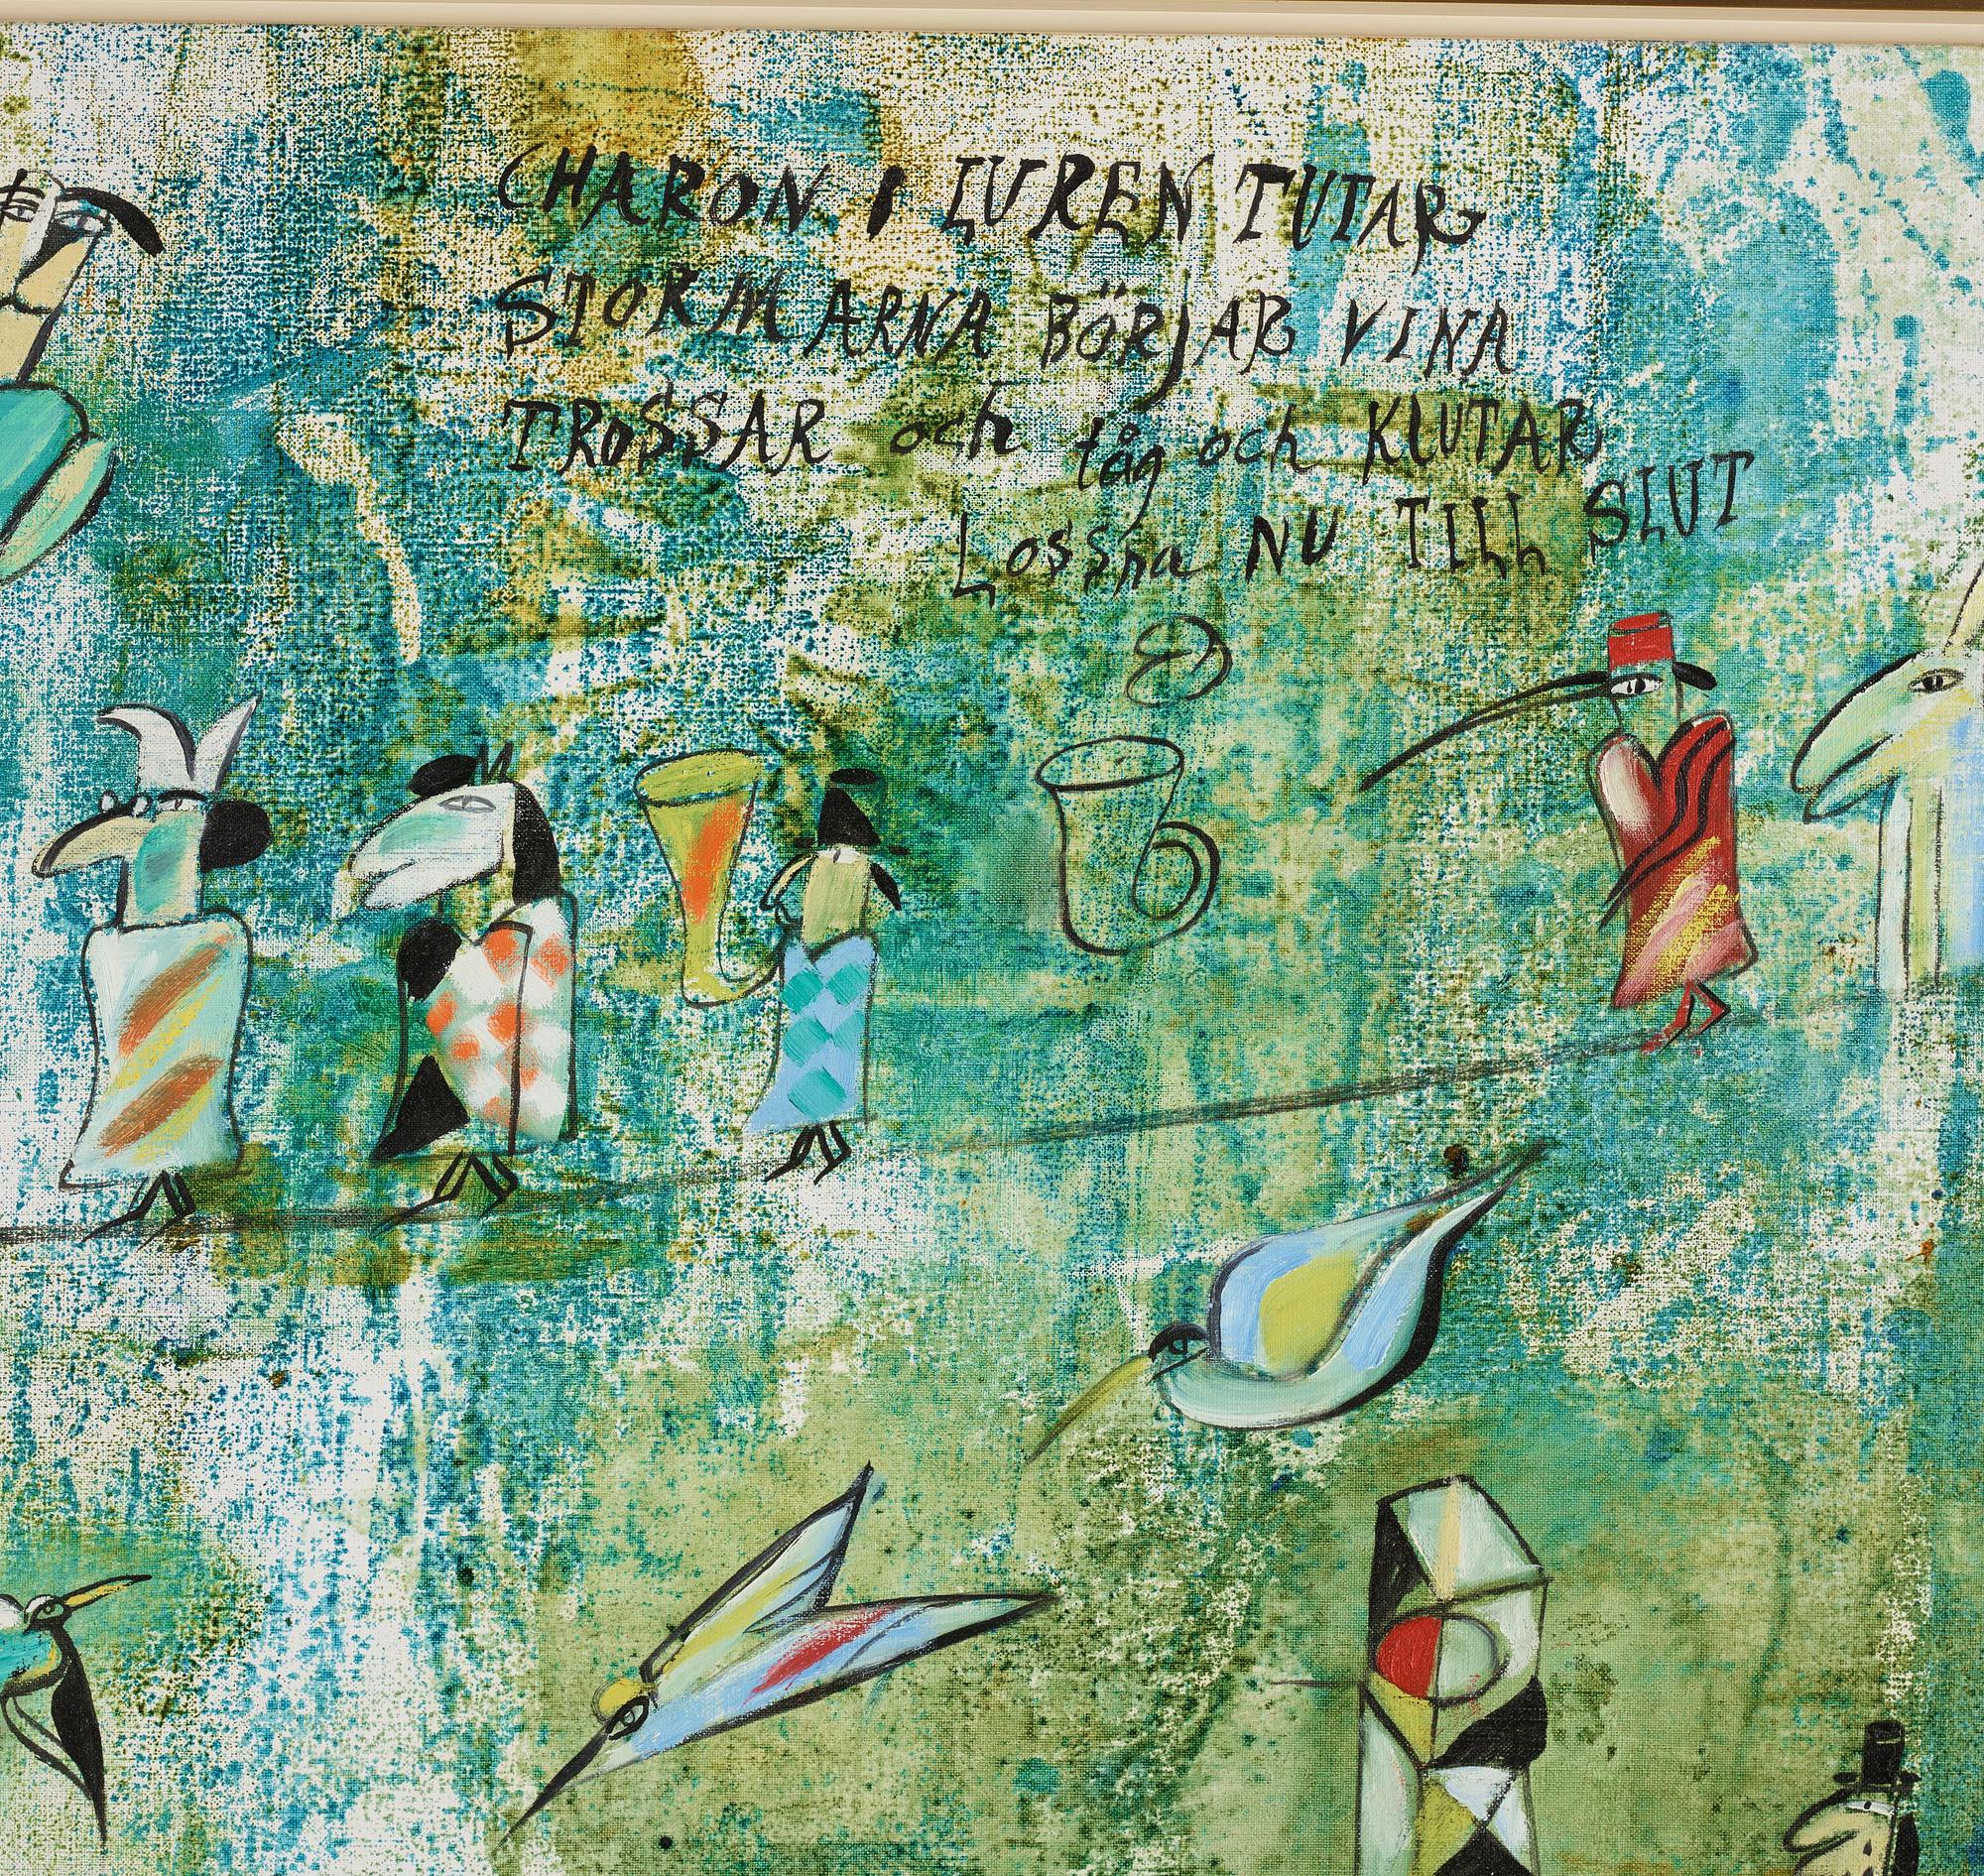 CHARON I LUREN TUTAR
STORMARNA BÖRJAR VINA
TROSSAR och tåg och KLUTAR
Lossna NU TILL SLUT